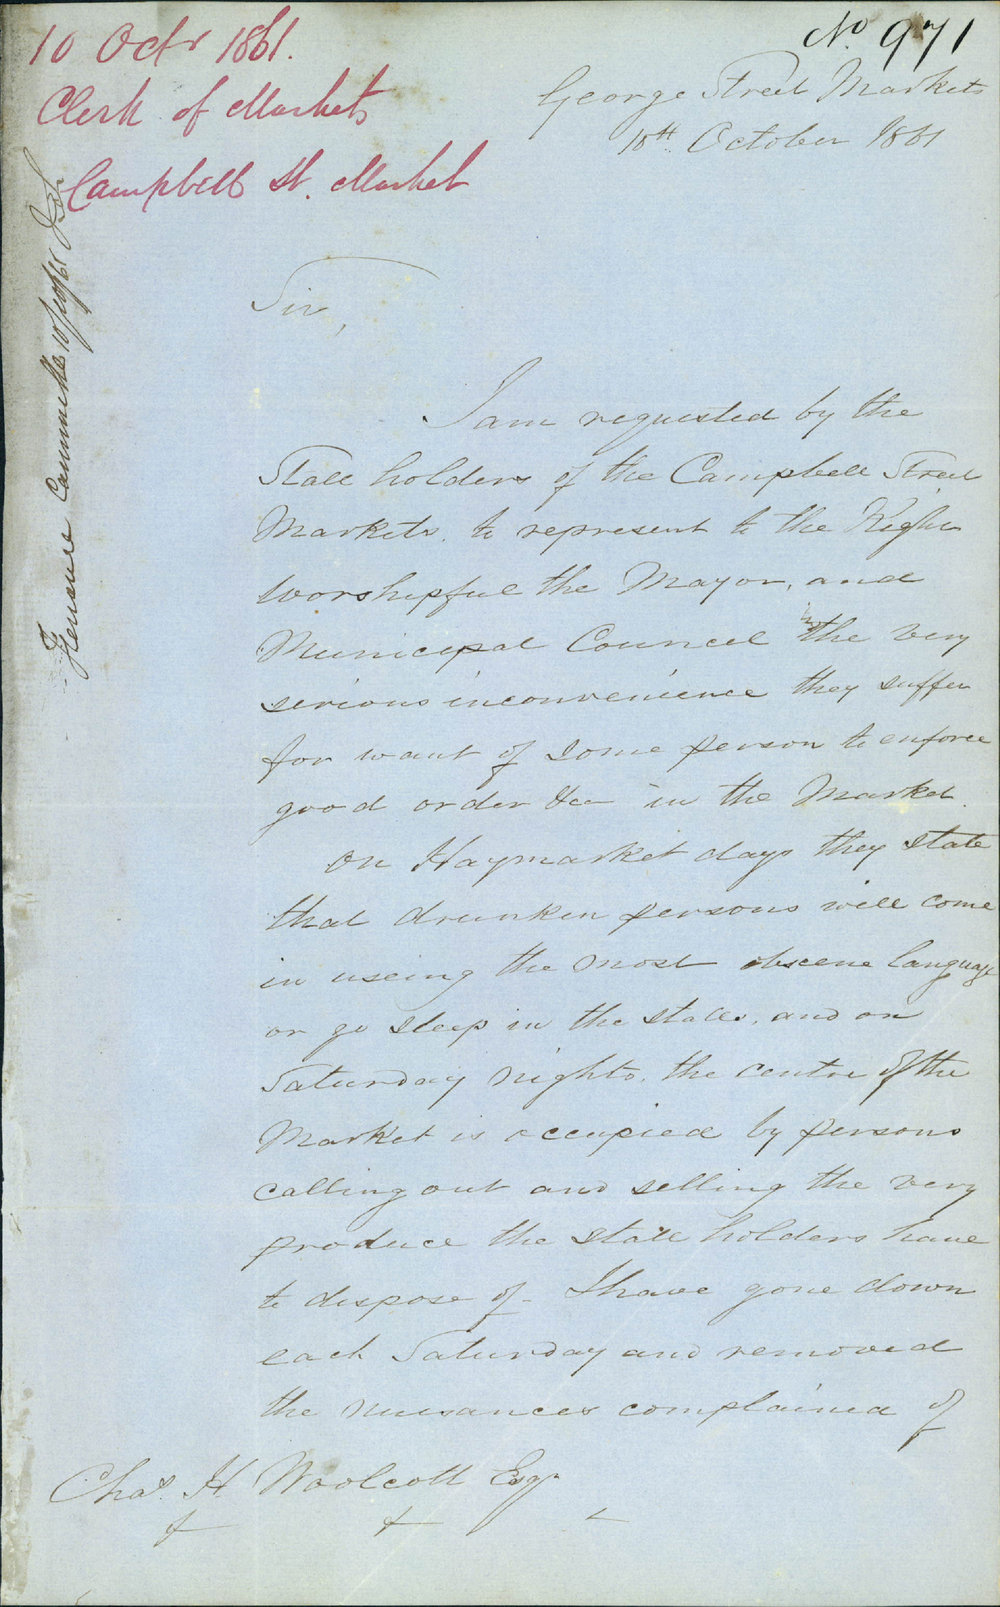 10 Octr 1861.
Clerk of Markets
Campbell St. Market
No. 971
George Street Markets
10th October 1861
Sir,
I am requested by the
Stall holders of the Campbell Street
Markets. to represent to the Right
Worshipful the Mayor, and
Municipal Council the very
serious inconvenience they suffer
for want of some person to enforce
good order &c in the Market.
On Haymarket days they state
that drunken persons will come
in useing the most obscene language
or go sleep in the stalls, and on
Saturday nights. the centre of the
Market is occupied by persons
calling out and selling the very
produce the stall holders have
to dispose of - I have gone down
each Saturday and removed
the nuisances complained of
Chas. H. Woolcott Esqr
Finance Committee